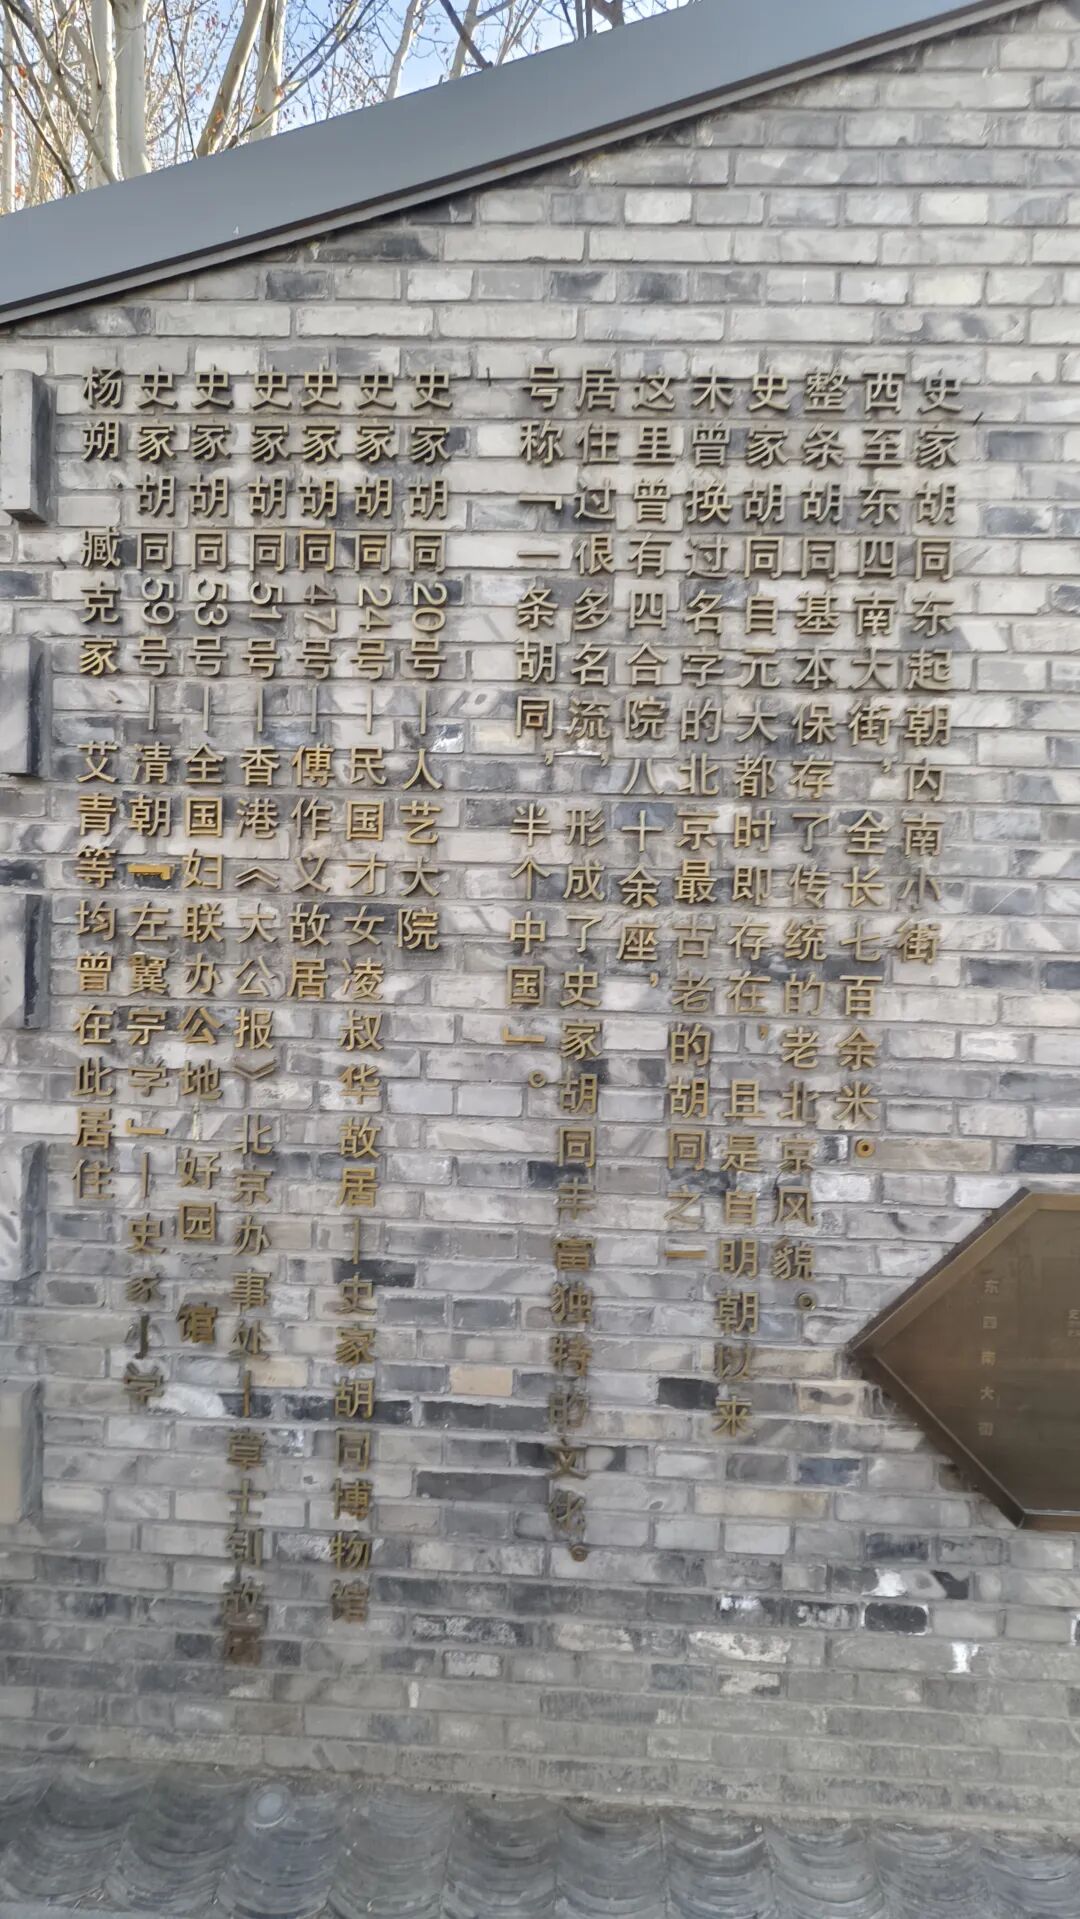 史家胡同东起朝内南小街
西至东四南大街，全长七百余米。
整条胡同基本保存了传统的老北京风貌。
史家胡同自元大都时即存在，且是自明朝以来
未曾换过名字的北京最古老的胡同之一
这里曾有四合院八十余座，
居住过很多名流，形成了史家胡同丰富独特的文化。
号称「一条胡同，半个中国」。
史家胡同20号—人艺大院
史家胡同24号—民国才女凌叔华故居—史家胡同博物馆
史家胡同47号—傅作义故居
史家胡同51号—香港《大公报》北京办事处—章士钊故居
史家胡同53号—全国妇联办公地 好园 馆
史家胡同59号—清朝「左翼宗学」—史家小学
杨朔、臧克家、艾青等均曾在此居住
东四南大街